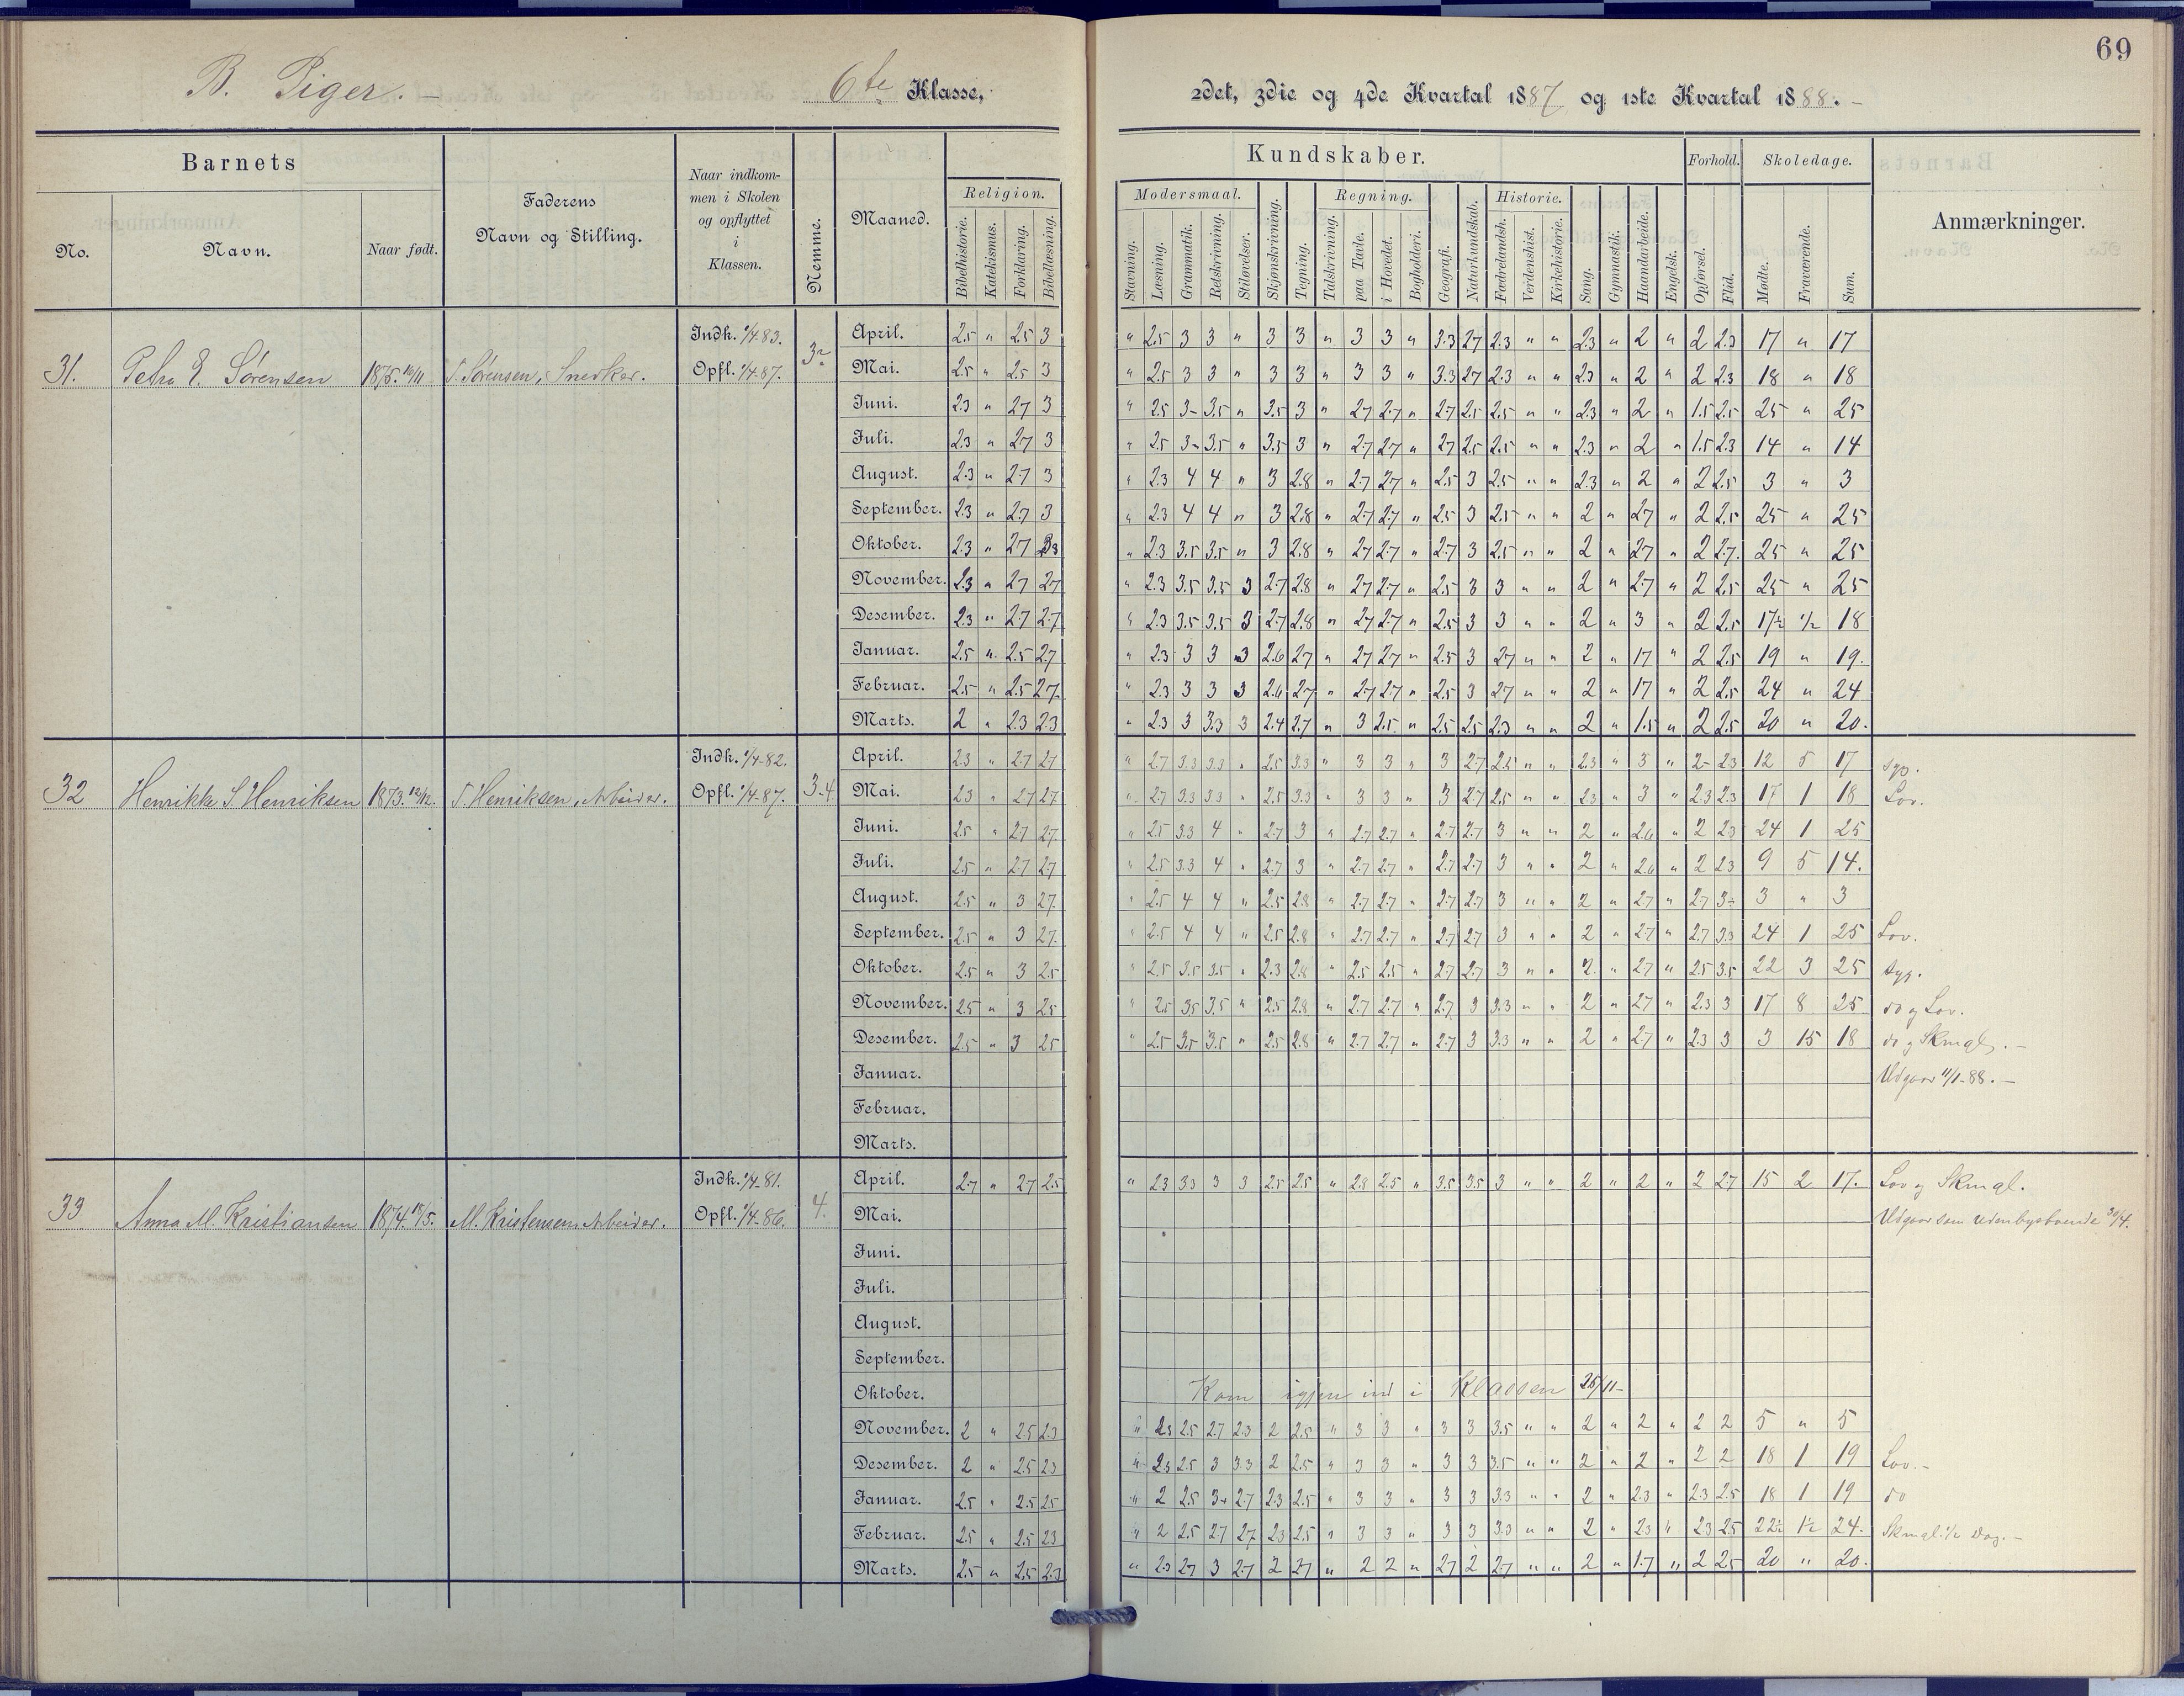 69
B. Piger. –
6te Klasse,
2det, 3die og 4de Kvartal 1887 og 1ste Kvartal 1888. –
Barnets
No.
Navn.
Naar født.
Faderens
Navn og Stilling.
Naar indkom-
men i Skolen
og opflyttet
i
Klassen.
Nemme.
Maaned.
Religion.
Bibelhistorie.
Katekismus.
Forklaring.
Bibellæsning.
Kundskaber.
Modersmaal.
Stavning.
Læsning.
Grammatik.
Retskrivning.
Stiløvelser.
Skjønskrivning.
Tegning.
Regning.
Talskrivning.
paa Tavle.
i Hovedet.
Bogholderi.
Geografi.
Naturkundskab.
Historie.
Fædrelandsh.
Verdenshist.
Kirkehistorie.
Sang.
Gymnastik.
Haandarbeide.
Engelsk.
Forhold.
Opførsel.
Flid.
Skoledage.
Mødte.
Fraværende.
Sum.
Anmærkninger.
31. Petra E. Sørensen 1875. 10/11 T. Sørensen, Snedker. Indk. 1/4 83. Opfl. 1/4 87.
April. 2.5 " 2.5 3 " 2.5 3 3 " 3 3 " 3 3 " 3.3 2.7 2.3 " " 2.3 " 2 " 2 2.3 17 " 17
Mai. 2.5 " 2.5 3 " 2.5 3 3 " 3 3 " 3 3 " 3.3 2.7 2.3 " " 2.3 " 2 " 2 2.3 18 " 18
Juni. 2.3 " 2.7 3 " 2.5 3- 3.5 " 3.5 3 " 2.7 2.7 " 2.7 2.5 2.5 " " 2.3 " 2 " 1.5 2.5 25 " 25
Juli. 2.3 " 2.7 3 " 2.5 3- 3.5 " 3.5 3 " 2.7 2.7 " 2.7 2.5 2.5 " " 2.3 " 2 " 1.5 2.3 14 " 14
August. 2.3 " 2.7 3 " 2.3 4 4 " 3 2.8 " 2.7 2.7 " 2.5 3 2.5 " " 2.3 " 2 " 2 2.5 3 " 3
September. 2.3 " 2.7 3 " 2.3 4 4 " 3 2.8 " 2.7 2.7 " 2.5 3 2.5 " " 2 " 2.7 " 2 2.5 25 " 25
Oktober. 2.3 " 2.7 " 2.3 3.5 3.5 " 3 2.8 " 2.7 2.7 " 2.7 3 2.5 " " 2 " 2.7 " 2 2.7. 25 " 25
November. 2.3 " 2.7 2.7 " 2.3 3.5 3.5 3 2.7 2.8 " 2.7 2.7 " 2.5 3 3 " " 2 " 2.7 " 2 2.5 25 " 25
Desember. 2.3 " 2.7 2.7 " 2.3 3.5 3.5 3 2.7 2.8 " 2.7 2.7 " 2.5 3 3 " " 2 " 3 " 2 2.5 17½ ½ 18
Januar. 2.5 " 2.5 2.7 " 2.3 3 3 3 2.6 2.7 " 2.7 2.7 " 2.5 3 2.7 " " 2 " 1.7 " 2 2.5 19 " 19.
Februar. 2.5 " 2.5 2.7 " 2.3 3 3 3 2.6 2.7 " 2.7 2.7 " 2.5 3 2.7 " " 2 " 1.7 " 2 2.5 24 " 24
Marts. 2 " 2.3 2.3 " 2.3 3 3.3 3 2.4 2.7 " 3 2.5 " 2.5 2.5 2.3 " " 2 " 1.5 " 2 2.5 20 " 20.
32 Henrikke S. Henriksen 1873. 12/12. T. Henriksen, Arbeider. Indk. 1/4-82. Opfl. 1/4-87. 3.4
April. 2.3 " 2.7 2.7 " 2.7 3.3 3.3 " 2.5 3.3 " 3 3 " 3 2.7 2.5 " " 2.3 " 3 " 2- 2.3 12 5 17 syg.
Mai. 2.3 " 2.7 2.7 " 2.7 3.3 3.3 " 2.5 3.3 " 3 3 " 3 2.7 2.5 " " 2.3 " 3 " 2.3 2.3 17 1 18 Lov.
Juni. 2.5 " 2.7 2.7 " 2.5 3.3 4 " 2.7 3 " 2.7 2.7 " 2.7 2.7 3 " " 2 " 2.6 " 2 2.3 24 1 25
Juli. 2.5 " 2.7 2.7 " 2.5 3.3 4 " 2.7 3 " 2.7 2.7 " 2.7 2.7 3 " " 2 " 2.6 " 2 2.3 9 5 14.
August. 2.5 " 3 2.7 " 2.5 4 4 " 2.5 2.8 " 2.7 2.7 " 2.7 2.7 3 " " 2 " 2.7 " 2.7 3- 3 " 3
September. 2.5 " 3 2.7 " 2.5 4 4 " 2.5 2.8 " 2.7 2.7 " 2.7 2.7 3 " " 2 " 2.7 " 2.7 3.3 24 1 25 Lov.
Oktober. 2.5 " 3 2.5 " 2.5 3.5 3.5 " 2.3 2.8 " 2.5 2.5 " 2.7 2.7 3 " " 2 " 2.7 " 2.5 3.5 22 3 25 syg.
November. 2.5 " 3 2.5 " 2.5 3.5 3.5 " 2.5 2.8 " 2.7 2.7 " 2.7 3 3.3 " " 2 " 2.7 " 2.3 3 17 8 25 do og Lov.
Desember. 2.5 " 3 2.5 " 2.5 3.5 3.5 " 2.5 2.8 " 2.7 2.7 " 2.7 3 3.3 " " 2 " 2.7 " 2.3 3 3 15 18 do og Skmgl. –
Januar. Udgaar 11/1-88. –
Februar.
Marts.
33 Anna M. Kristiansen 1874. 18/5. M. Kristensen, Arbeider. Indk. 1/4-81. Opfl. 1/4-86. 4.
April. 2.7 " 2.7 2.5 " 2.3 3.3 3 3 2.5 2.5 " 2.8 2.5 " 3.5 3.5 3 " " 2 " 2 " 2 2.7 15 2 17. Lov og Skmgl.
Mai. Udgaar som udenbysboende 30/4.
Juni.
Juli.
August.
September.
Oktober. Kom igjen ind i Klassen 25/11-
November. 2 " 2.5 2.3 " 2.3 2.5 2.7 2.3 2 2.5 " 3 3 " 3 3 3.5 " " 2 " 2 " 2 2 5 " 5
Desember. 2 " 2.5 2.3 " 2.3 2.5 3 3.3 2 2.5 " 3 3 " 3 3 3.5 " " 2 " 2 " 2 2 18 1 19 Lov. –
Januar. 2.5 " 2.5 2.5 " 2 2.5 3+ 2.7 2.3 2.5 " 3 3 " 3 3 3.3 " " 2 " 2.3 " 2.3 2.5 18 1 19 do
Februar. 2.5 " 2.5 2.3 " 2 2.5 2.7 2.7 2.3 2.5 " 3 3 " 3 3 3.3 " " 2 " 2.3 " 2.3 2.5 22½ 1½ 24. Skmgl. ½ Dag. –
Marts. 2.5 " 2.5 2.3 " 2.3 2.7 3 2.7 2 2.7 " 2 2 " 2.7 2 2.7 " " 2 " 1.7 " 2 2.5 20 " 20.